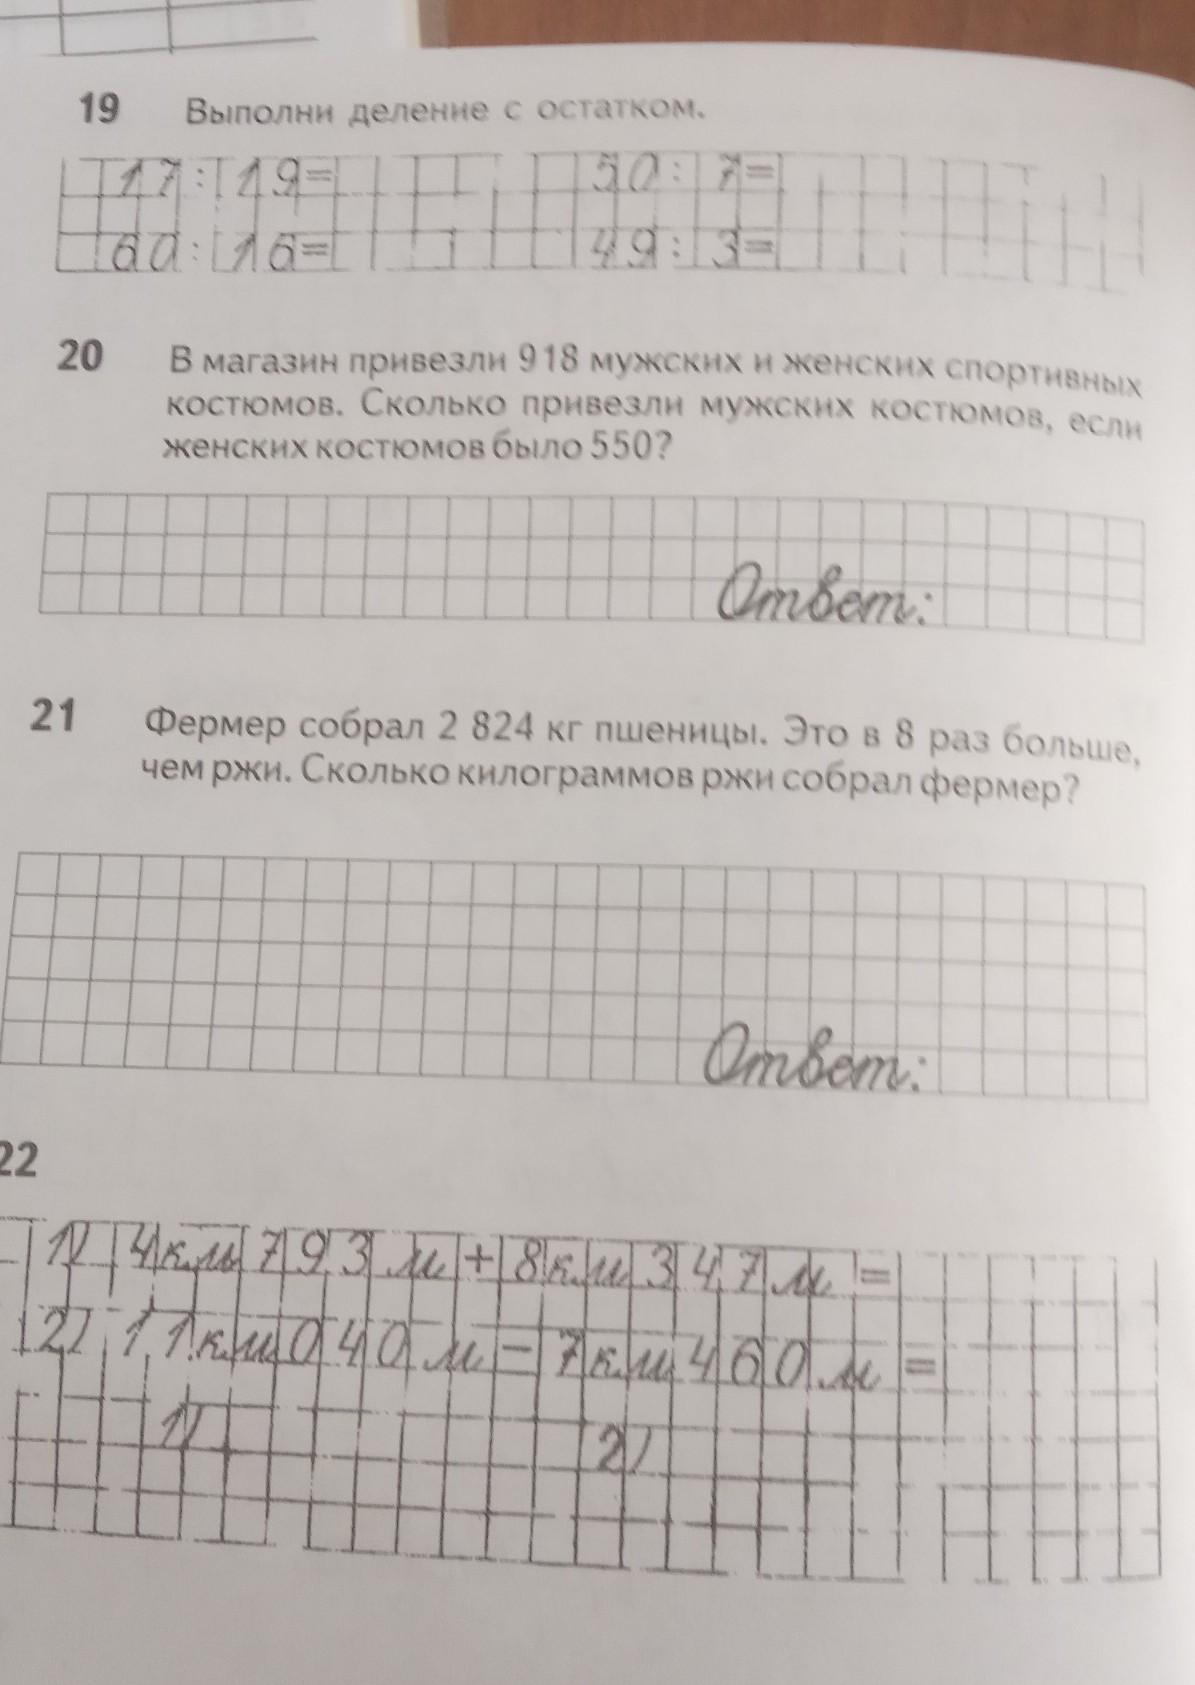 19 Выполни деление с остатком.
17:19= 50:7=
60:16= 49:3=
20 В магазин привезли 918 мужских и женских спортивных
костюмов. Сколько привезли мужских костюмов, если
женских костюмов было 550?
Ответ:
21 Фермер собрал 2 824 кг пшеницы. Это в 8 раз больше,
чем ржи. Сколько килограммов ржи собрал фермер?
Ответ:
22
1) 4км 793 м + 8км 347 м =
2) 11км 040 м - 7км 460 м =
1) 2)